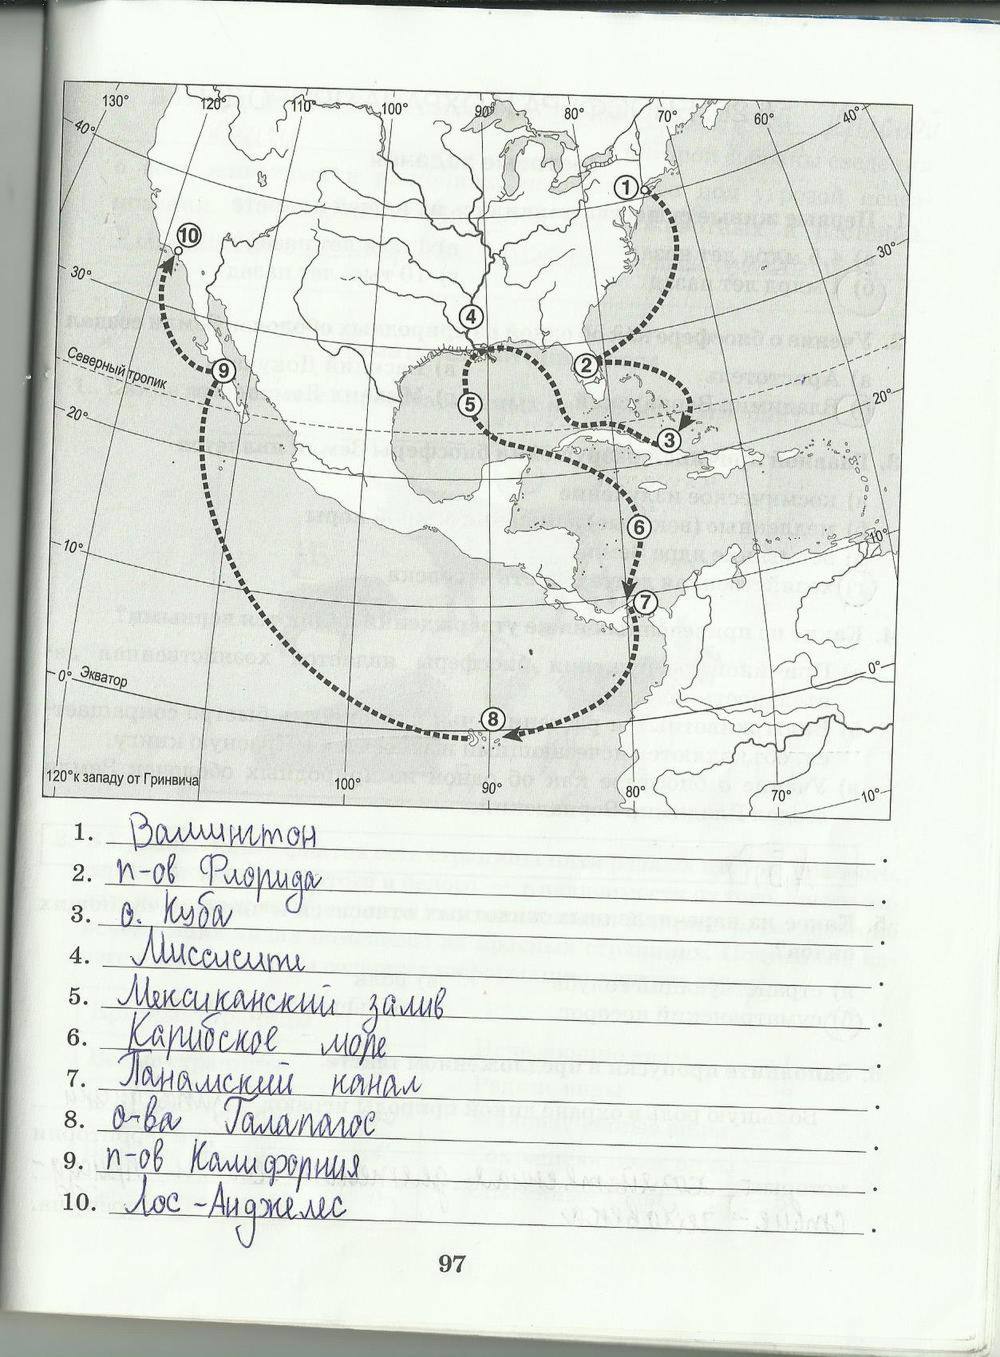 130° 120° 110° 100° 90° 80° 70° 60° 40°
40°
1
10
30°
30°
4
2
9
Северный тропик
5
20°
20°
3
6
10°
10°
7
0° Экватор
0°
8
120° к западу от Гринвича
100° 90° 80° 70° 10°
1. Вашингтон.
2. п-ов Флорида.
3. о. Куба.
4. Миссисипи.
5. Мексиканский залив.
6. Карибское море.
7. Панамский канал.
8. о-ва Галапагос.
9. п-ов Калифорния.
10. Лос-Анджелес.
97